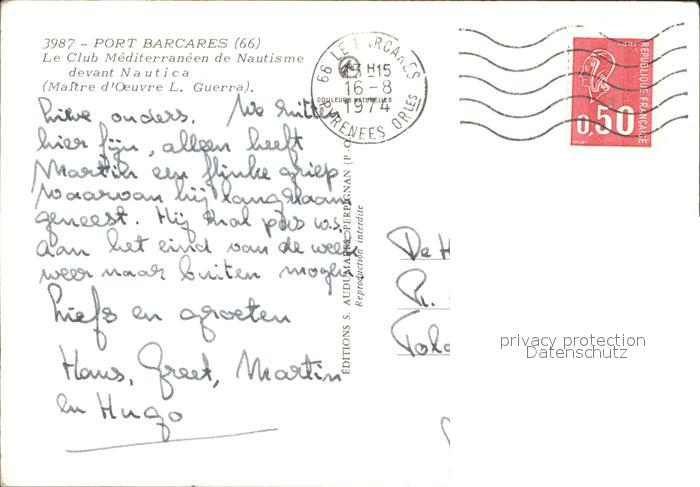 3987 - PORT BARCARES (66)
Le Club Méditerranéen de Nautisme
devant Nautica
(Maître d'Oeuvre L. Guerra).
Lieve ouders. We zitten
hier fijn, alleen heeft
Martin een flinke griep
waarvan hij langzaam
geneest. Hij zal pas w.s.
aan het eind van de week
weer naar buiten mogen.
Liefs en groeten
Hans, Greet, Martin
en Hugo
66 LE BARCARES
13 H15
16-8
1974
PYRENEES ORLES
COULEURS NATURELLES
ÉDITIONS S. AUDUMARES, PERPIGNAN (P.-O.
Reproduction interdite
REPUBLIQUE FRANÇAISE
POSTES
0,50
De H
privacy protection
Datenschutz